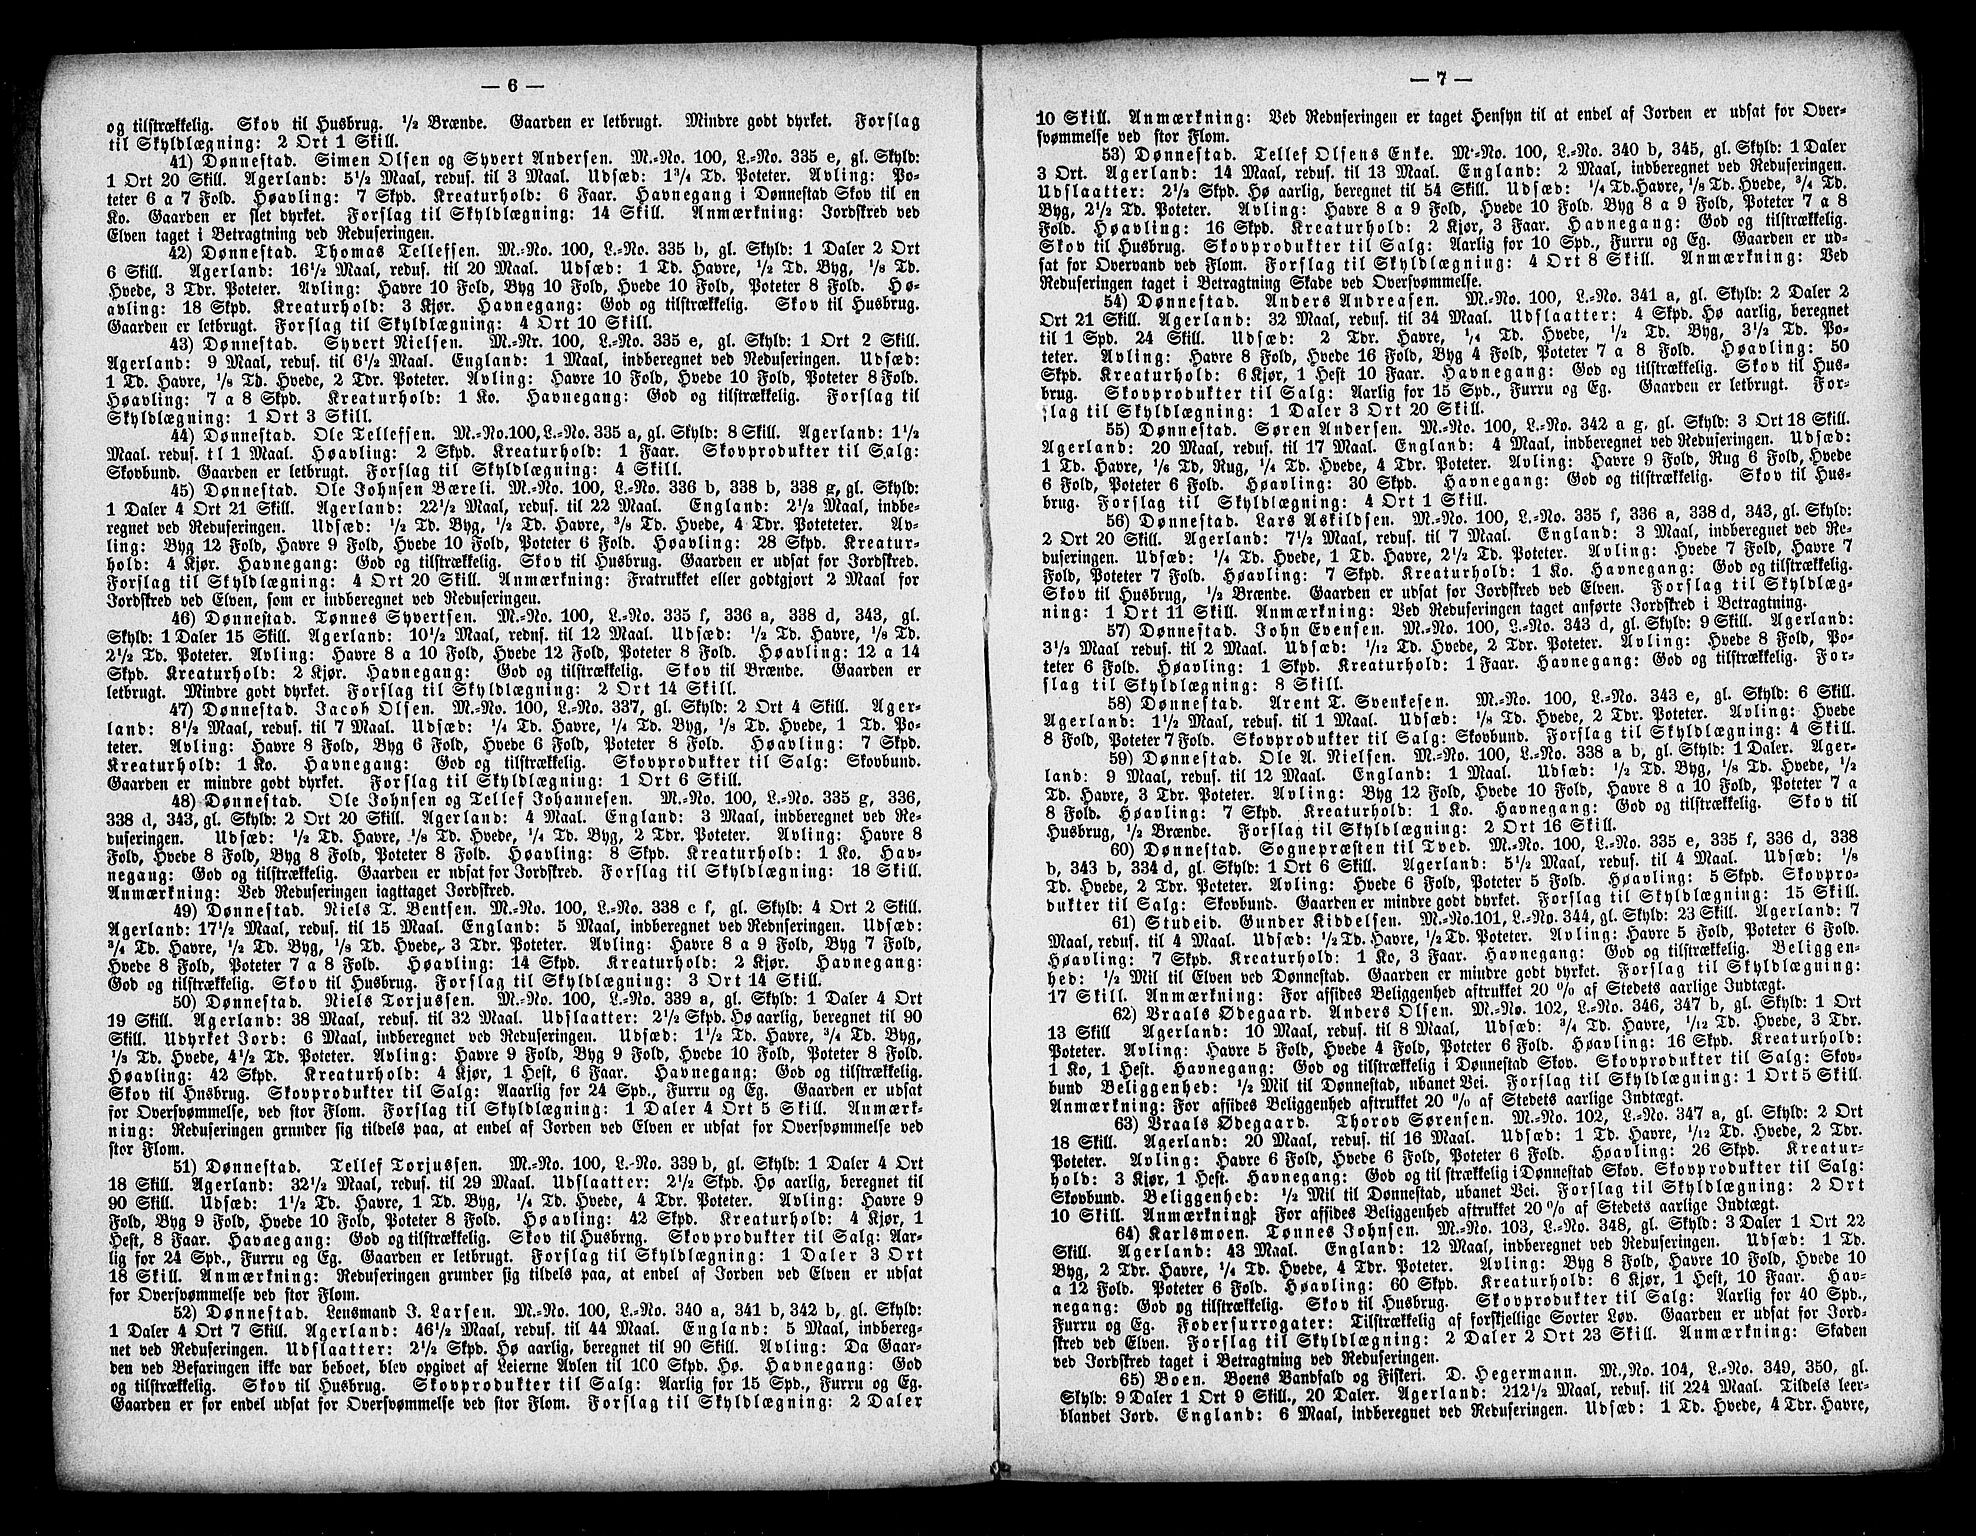 — 6 —
og tilstrækkelig. Skov til Husbrug. 1/2 Brænde. Gaarden er letbrugt. Mindre godt dyrket. Forslag
til Skyldlægning: 2 Ort 1 Skill.
41) Dønnestad. Simen Olsen og Syvert Andersen. M.=No. 100, L.=No. 335 e, gl. Skyld:
1 Ort 20 Skill. Agerland: 5 1/2 Maal, redus. til 3 Maal. Udsæd: 1 3/4 Td. Poteter. Avling: Po=
teter 6 a 7 Fold. Høavling: 7 Skpd. Kreaturhold: 6 Faar. Havnegang i Dønnestad Skov til en
Ko. Gaarden er slet dyrket. Forslag til Skyldlægning: 14 Skill. Anmærkning: Jordskred ved
Elven taget i Betragtning ved Reduseringen.
42) Dønnestad. Thomas Tellefsen. M.=No. 100, L.=No. 335 b, gl. Skyld: 1 Daler 2 Ort
6 Skill. Agerland: 16 1/2 Maal, redus. til 20 Maal. Udsæd: 1 Td. Havre, 1/2 Td. Byg, 1/8 Td.
Hvede, 3 Tdr. Poteter. Avling: Havre 10 Fold, Byg 10 Fold, Hvede 10 Fold, Poteter 8 Fold. Hø=
avling: 18 Skpd. Kreaturhold: 3 Kjør. Havnegang: God og tilstrækkelig. Skov til Husbrug.
Gaarden er letbrugt. Forslag til Skyldlægning: 4 Ort 10 Skill.
43) Dønnestad. Syvert Nielsen. M.=Nr. 100, L.=No. 335 e, gl. Skyld: 1 Ort 2 Skill.
Agerland: 9 Maal, redus. til 6 1/2 Maal. England: 1 Maal, indberegnet ved Reduseringen. Udsæd:
1 Td. Havre, 1/8 Td. Hvede, 2 Tdr. Poteter. Avling: Havre 10 Fold, Hvede 10 Fold, Poteter 8 Fold.
Høavling: 7 a 8 Skpd. Kreaturhold: 1 Ko. Havnegang: God og tilstrækkelig. Forslag til
Skyldlægning: 1 Ort 3 Skill.
44) Dønnestad. Ole Tellefsen. M.=No. 100, L.=No. 335 a, gl. Skyld: 8 Skill. Agerland: 1 1/2
Maal. redus. tl 1 Maal. Høavling: 2 Skpd. Kreaturhold: 1 Faar. Skovprodukter til Salg:
Skovbund. Gaarden er letbrugt. Forslag til Skyldlægning: 4 Skill.
45) Dønnestad. Ole Johnsen Bæreli. M.=No. 100, L.=No. 336 b, 338 b, 338 g, gl. Skyld:
1 Daler 4 Ort 21 Skill. Agerland: 22 1/2 Maal, redus. til 22 Maal. England: 2 1/2 Maal, indbe=
regnet ved Reduseringen. Udsæd: 1/2 Td. Byg, 1/2 Td. Havre, 3/8 Td. Hvede, 4 Tdr. Poteteter. Av=
ling: Byg 12 Fold, Havre 9 Fold, Hvede 10 Fold, Poteter 6 Fold. Høavling: 28 Skpd. Kreatur=
hold: 4 Kjør. Havnegang: God og tilstrækkelig. Skov til Husbrug. Gaarden er udsat for Jordskred.
Forslag til Skyldlægning: 4 Ort 20 Skill. Anmærkning: Fratrukket eller godtgjort 2 Maal for
Jordskred ved Elven, som er indberegnet ved Reduseringen.
46) Dønnestad. Tønnes Syvertsen. M.=No. 100, L.=No. 335 f, 336 a, 338 d, 343, gl.
Skyld: 1 Daler 15 Skill. Agerland: 10 1/2 Maal, redus. til 12 Maal. Udsæd: 1/2 Td. Havre, 1/8 Td.
2 1/2 Td. Poteter. Avling: Havre 8 a 10 Fold, Hvede 12 Fold, Poteter 8 Fold. Høavling: 12 a 14
Skpd. Kreaturhold: 2 Kjør. Havnegang: God og tilstrækkelig. Skov til Brænde. Gaarden er
letbrugt. Mindre godt dyrket. Forslag til Skyldlægning: 2 Ort 14 Skill.
47) Dønnestad. Jacob Olsen. M.=No. 100, L.=No. 337, gl. Skyld: 2 Ort 4 Skill. Ager=
land: 8 1/2 Maal, redus. til 7 Maal. Udsæd: 1/4 Td. Havre, 1/4 Td. Byg, 1/8 Td. Hvede, 1 Td. Po=
teter. Avling: Havre 8 Fold, Byg 6 Fold, Hvede 6 Fold, Poteter 8 Fold. Høavling: 7 Skpd.
Kreaturhold: 1 Ko. Havnegang: God og tilstrækkelig. Skovprodukter til Salg: Skovbund.
Gaarden er mindre godt dyrket. Forslag til Skyldlægning: 1 Ort 6 Skill.
48) Dønnestad. Ole Johnsen og Tellef Johannesen. M.=No. 100, L.=No. 335 g, 336,
338 d, 343, gl. Skyld: 2 Ort 20 Skill. Agerland: 4 Maal. England: 3 Maal, indberegnet ved Re=
duseringen. Udsæd: 1/2 Td. Havre, 1/8 Td. Hvede, 1/4 Td. Byg, 2 Tdr. Poteter. Avling: Havre 8
Fold, Hvede 8 Fold, Byg 8 Fold, Poteter 8 Fold. Høavling: 8 Skpd. Kreaturhold: 1 Ko. Hav=
negang: God og tilstrækkelig. Gaarden er udsat for Jordskred. Forslag til Skyldlægning: 18 Skill.
Anmærkning: Ved Reduseringen iagttaget Jordskred.
49) Dønnestad. Niels T. Bentsen. M.=No. 100, L.=No. 338 c f, gl. Skyld: 4 Ort 2 Skill.
Agerland: 17 1/2 Maal, redus. til 15 Maal. England: 5 Maal, indberegnet ved Reduseringen. Udsæd:
3/4 Td. Havre, 1/2 Td. Byg, 1/8 Td. Hvede, 3 Tdr. Poteter. Avling: Havre 8 a 9 Fold, Byg 7 Fold,
Hvede 8 Fold, Poteter 7 a 8 Fold. Høavling: 14 Skpd. Kreaturhold: 2 Kjør. Havnegang:
God og tilstrækkelig. Skov til Husbrug. Forslag til Skyldlægning: 3 Ort 14 Skill.
50) Dønnestad. Niels Torjussen. M.=No. 100, L.=No. 339 a, gl. Skyld: 1 Daler 4 Ort
19 Skill. Agerland: 38 Maal, redus. til 32 Maal. Udslaatter: 2 1/2 Skpd. Hø aarlig, beregnet til 90
Skill. Udyrket Jord: 6 Maal, indberegnet ved Reduseringen. Udsæd: 1 1/2 Td. Havre, 3/4 Td. Byg,
1/3 Td. Hvede, 4 1/2 Td. Poteter. Avling: Havre 9 Fold, Byg 9 Fold, Hvede 10 Fold, Poteter 8 Fold.
Høavling: 42 Skpd. Kreaturhold: 4 Kjør, 1 Hest, 6 Faar. Havnegang: God og tilstrækkelig.
Skov til Husbrug. Skovprodukter til Salg: Aaarlig for 24 Spd., Furru og Eg. Gaarden er udsat
for Oversvømmelse, ved stor Flom. Forslag til Skyldlægning: 1 Daler 4 Ort 5 Skill. Anmærk=
ning: Reduseringen grunder sig tildels paa, at endel af Jorden ved Elven er udsat for Oversvømmelse ved
stor Flom.
51) Dønnestad. Tellef Torjussen. M.=No. 100, L.-No. 339 b, gl. Skyld: 1 Daler 4 Ort
18 Skill. Agerland: 32 1/2 Maal, redus. til 29 Maal. Udslaatter: 2 1/2 Skpd. Hø aarlig, beregnet til
90 Skill. Udsæd: 1 1/2 Td. Havre, 1 Td. Byg, 1/4 Td. Hvede, 4 Tdr. Poteter. Avling: Havre 9
Fold, Byg 9 Fold, Hvede 10 Fold, Poteter 8 Fold. Høavling: 42 Skpd. Kreaturhold: 4 Kjør, 1
Hest, 8 Faar. Havnegang: God og tilstrækkelig. Skov til Husbrng. Skovprodukter til Salg: Aar=
lig for 24 Spd., Furru og Eg. Gaarden er letbrugt. Forslag til Skyldlægning: 1 Daler 3 Ort
18 Skill. Anmærkning: Reduseringen grunder sig tildels paa, at endel af Jorden ved Elven er udsat
for Oversvømmelse ved stor Flom.
52) Dønnestad. Lensmand J. Larsen. M.=No. 100, L.=No. 340 a, 341 b, 342 b, gl. Skyld:
1 Daler 4 Ort 7 Skill. Agerland: 46 1/2 Maal, redus. til 44 Maal. England: 5 Maal, indbereg=
net ved Reduseringen. Udslaatter: 2 1/2 Skpd. Hø aarlig, beregnet til 90 Skill. Avling: Da Gaar=
den ved Befaringen ikke var beboet, blev opgivet af Leierne Avlen til 100 Skpd. Hø. Havnegang: God
og tilstrækkelig. Skov til Husbrug. Skovprodukter til Salg: Aarlig for 15 Spd., Furru og Eg.
Gaarden er for endel udsat for Oversvømmelse ved stor Flom. Forslag til Skyldlægning: 2 Daler
— 7 —
10 Skill. Anmærkning: Ved Reduseringen er taget Hensyn til at endel af Jorden er udsat for Over=
svømmelse ved stor Flom.
53) Dønnestad. Tellef Olsens Enke. M.=No. 100, L.=No. 340 b, 345, gl. Skyld: 1 Daler
3 Ort. Agerland: 14 Maal, redus. til 13 Maal. England: 2 Maal, indberegnet ved Reduseringen.
Udslaatter: 2 1/2 Skpd. Hø aarlig, beregnet til 54 Skill. Udsæd: 1/4 Td. Havre, 1/8 Td. Hvede, 3/4 Td.
Byg, 2 1/2 Td. Poteter. Avling: Havre 8 a 9 Fold, Hvede 10 Fold. Byg 8 a 9 Fold, Poteter 7 a 8
Fold. Høavling: 16 Skpd. Kreaturhold: 2 Kjør, 3 Faar. Havnegang: God og tilstrækkelig.
Skov til Husbrug. Skovprodukter til Salg: Aarlig for 10 Spd., Furru og Eg. Gaarden er ud=
sat for Overvand ved Flom. Forslag til Skyldlægning: 4 Ort 8 Skill. Anmærkning: Ved
Reduseringen taget i Betragtning Skade ved Oversvømmelse.
54) Dønnestad. Anders Andreasen. M.=No. 100, L.=No. 341 a, gl. Skyld: 2 Daler 2
Ort 21 Skill. Agerland: 32 Maal, redus. til 34 Maal. Udslaatter: 4 Skpd. Hø aarlig, beregnet
til 1 Spd. 24 Skill. Udsæd: 2 Tdr. Havre, 1/4 Td. Hvede, 1/2 Td. Byg, 3 1/2 Td. Po=
teter. Avling: Havre 8 Fold, Hvede 16 Fold, Byg 4 Fold, Poteter 7 a 8 Fold. Høavling: 50
Skpd. Kreaturhold: 6 Kjør, 1 Hest 10 Faar. Havnegang: God og tilstrækkelig. Skov til Hus=
brug. Skovprodukter til Salg: Aarlig for 15 Spd, Furru og Eg. Gaarden er letbrugt. For=
slag til Skyldlægning: 1 Daler 3 Ort 20 Skill.
55) Dønnestad. Søren Andersen. M.=No. 100, L.=No. 342 a g. gl. Skyld: 3 Ort 18 Skill.
Agerland: 20 Maal, redus. til 17 Maal. England: 4 Maal, indberegnet ved Reduseringen. Udsæd:
1 Td. Havre, 1/8 Td, Rug, 1/4 Td. Hvede, 4 Tdr. Poteter. Avling: Havre 9 Fold, Rug 6 Fold, Hvede
6 Fold, Poteter 6 Fold. Høavling: 30 Skpd. Havnegang: God og tilstrækkelig. Skov til Hus=
brug. Forslag til Skyldlægning: 4 Ort 1 Skill.
56) Dønnestad. Lars Askildsen. M.=No. 100, L.=No. 335 f, 336 a, 338 d, 343, gl. Skyld:
2 Ort 20 Skill. Agerland: 7 1/2 Maal, redus. til 7 Maal. England: 3 Maal, indberegnet ved Re=
duseringen. Udsæd: 1/4 Td. Hvede, 1 Td. Havre, 2 1/2 Td. Poteter. Avling: Hvede 7 Fold, Havre 7
Fold, Poteter 7 Fold. Høavling: 7 Skpd. Kreaturhold: 1 Ko. Havnegang: God og tilstrækkelig.
Skov til Husbrug, 1/2 Brænde. Gaarden er udsat for Jordskred ved Elven. Forslag til Skyldlæg=
ning: 1 Ort 11 Skill. Anmærkning: Ved Reduseringen taget anførte Jordskred i Betragtning.
57) Dønnestad. John Evensen. M.=No. 100, L.=No. 343 d, gl. Skyld: 9 Skill. Agerland:
3 1/2 Maal redus. til 2 Maal. Udsæd: 1/12 Td. Hvede, 2 Tdr. Poteter. Avling: Hvede 8 Fold, Po=
teter 6 Fold. Høavling: 1 Skpd. Kreaturhold: 1 Faar. Havnegang: God og tilstrækkelig. For=
slag til Skyldlægning: 8 Skill.
58) Dønnestad. Arent T. Svenkesen. M.=No. 100, L.=No. 343 e, gl. Skyld: 6 Skill.
Agerland: 1 1/2 Maal, redus. til 1 Maal. Udsæd: 1/8 Td. Hvede, 2 Tdr. Poteter. Avling: Hvede
8 Fold, Poteter 7 Fold. Skovprodukter til Salg: Skovbund. Forslag til Skyldlægning: 4 Skill.
59) Dønnestad. Ole A. Nielsen. M.=No. 100, L.=No. 338 a b, gl. Skyld: 1 Daler. Ager=
land: 9 Maal, redus. til 12 Maal. England: 1 Maal. Udsæd: 1/2 Td. Byg, 1/8 Td. Hvede, 1/2
Td. Havre, 3 Tdr. Poteter. Avling: Byg 12 Fold, Hvede 10 Fold, Havre 8 a 10 Fold, Poteter 7 a
8 Fold. Høavling: 7 Skpd. Kreaturhold: 1 Ko. Havnegang: God og tilstrækkelig. Skov til
Husbrug, 1/2 Brænde. Forslag til Skyldlægning: 2 Ort 16 Skill.
60) Dønnestad. Sognepræsten til Tved. M.=No. 100, L.=No. 335 e, 335 f, 336 d, 338
b, 343 b, 334 d, gl. Skyld: 1 Ort 6 Skill. Agerland: 5 1/2 Maal, redus. til 4 Maal. Udsæd: 1/8
Td. Hvede, 2 Tdr. Poteter. Avling: Hvede 6 Fold, Poteter 5 Fold. Høavling: 5 Skpd. Skovpro=
dukter til Salg: Skovbund. Gaarden er mindre godt dyrket. Forslag til Skyldlægning: 15 Skill.
61) Studeid. Gunder Kiddelsen. M.=No. 101, L.=No. 344, gl. Skyld: 23 Skill. Agerland: 7
Maal, redus. til 4 Maal. Udsæd: 1/2 Td. Havre, 1/2 Td. Poteter. Avling: Havre 5 Fold, Poteter 6 Fold.
Høavling: 7 Skpd. Kreaturhold: 1 Ko, 3 Faar. Havnegang: God og tilstrækkelig. Beliggen=
hed: 1/2 Mil til Elven ved Dønnestad. Gaarden er mindre godt dyrket. Forslag til Skyldlægning:
17 Skill. Anmærkning: For affides Beliggenhed aftrukket 20 % af Stedets aarlige Indtægt.
62) Vraals Ødegaard. Anders Olsen. M.=No. 102, L.=No. 346, 347 b, gl. Skyld: 1 Ort
13 Skill Agerland: 10 Maal, redus. til 8 Maal, Udsæd: 3/4 Td. Havre, 1/12 Td. Hvede, 3 Tdr.
Poteter. Avling: Havre 5 Fold, Hvede 4 Fold, Poteter 6 Fold. Høavling: 16 Skpd. Kreaturhold:
1 Ko, 1 Hest. Havnegang: God og tilstrækkelig i Dønnestad Skov. Skovprodukter til Salg: Skov=
bund Beliggenhed: 1/2 Mil til Dønnestad, ubanet Vei. Forslag til Skyldlægning: 1 Ort 5 Skill.
Anmærkning: For affides Beliggenhed aftrukket 20 % af Stedets aarlige Indtægt.
63) Vraals Ødegaard. Thorov Sørensen. M.=No. 102, L.=No. 347 a, gl. Skyld: 2 Ort
18 Skill. Agerland: 20 Maal, redus. til 16 Maal. Udsæd: 1 Td. Havre, 1/12 Td. Hvede, 2 Tdr.
Poteter. Avling: Havre 6 Fold, Hvede 6 Fold, Poteter 6 Fold. Høavling: 26 Skpd. Kreatur=
hold: 3 Kjør, 1 Hest. Havnegang: God og tilstrækkelig i Dønnestad Skov. Skovprodukter til Salg:
Skovbund. Beliggenhed: 1/2 Mil til Dønnestad, ubanet Vei. Forslag til Skyldlægning: 2 Ort
10 Skill. Anmærkning: For affides Beliggenhed aftrukket 20 % af Stedets aarlige Indtægt.
64) Karlsmoen. Tønnes Johnsen. M.=No. 103, L.=No. 348, gl. Skyld: 3 Daler 1 Ort 22
Skill. Agerland: 43 Maal. England: 12 Maal, indberegnet ved Reduseringen. Udsæd: 1 Td.
Byg, 2 Tdr. Havre, 1/4 Td. Hvede, 4 Tdr. Poteter. Avling: Byg 8 Fold, Havre 10 Fold, Hvede 10
a 12 Fold. Poteter 6 Fold. Høavling: 60 Skpd. Kreaturhold: 6 Kjør, 1 Hest, 10 Faar. Hav=
negang: God og tilstrækkelig. Skov til Husbrug. Skovprodukter til Salg: Aarlig for 40 Spd.,
Furru og Eg. Fodersurrogater: Tilstrækkelig af forskjellige Sorter Løv. Gaarden er udsat for Jord=
skred ved Elven. Forslag til Skyldlægning: 2 Daler 2 Ort 23 Skill. Anmærkning: Skaden
ved Jordskred taget i Betragtning ved Reduseringen.
65) Boen. Boens Vandfald og Fiskeri. D. Hegermann. M.=No. 104, L.=No. 349, 350, gl.
Skyld: 9 Daler 1 Ort 9 Skill., 20 Daler. Agerland: 212 1/2 Maal, redus. til 224 Maal. Tildels leer=
blandet Jord. England: 6 Maal, indberegnet ved Reduseringen. Udsæd: 1 Td. Hvede, 4 Tdr. Havre,